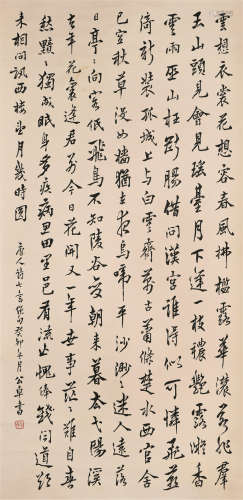 雲想衣裳花想容春風拂檻露華濃若非群
玉山頭見會見瑤臺月下逢一枝穠艷露凝香
雲雨巫山枉斷腸借問漢宮誰得似可憐飛燕
倚新裝孤城上與白雲齊萬古蕭條楚水官舍
已空秋草沒女墻猶在夜烏啼平沙渺渺迷人遠落
日亭亭向客低飛鳥不知陵谷變朝來暮去弋陽溪
去年花裏逢君別今日花開又一年世事茫茫難自春
愁黯黯獨成眠身多疾病思田里邑有流亡愧俸錢聞道欲
來相問訊西樓望月幾時圓
唐人詩七言 癸卯年月公卓書